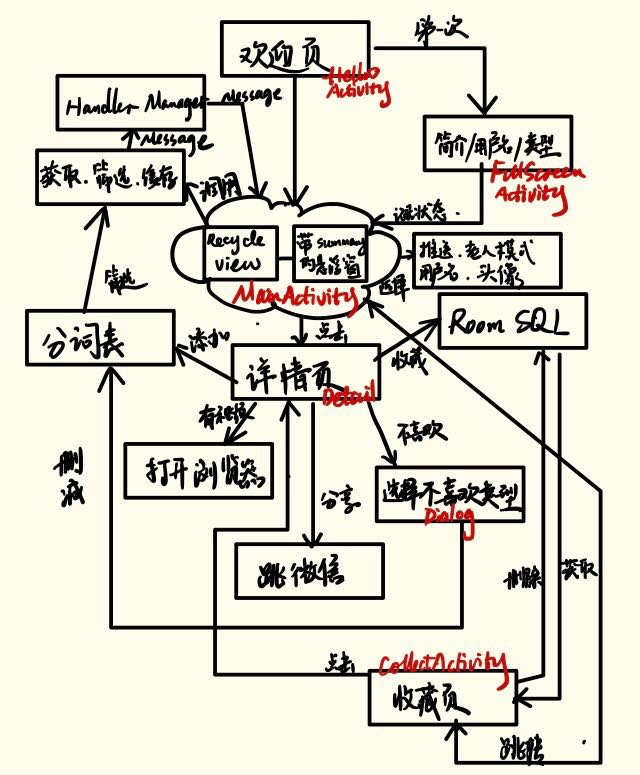 欢迎页
Hello
Activity
第一次
Handler Manager
Message
Message
简介/用户名/类型
FullScreen
Activity
获取.筛选.缓存
调用
读状态.
Recycle
View
带summary
的悬浮窗
MainActivity
推送.老人模式
用户名.头像
选择
筛选
点击
Room SQL
收藏
分词表
添加
详情页
Detail
不喜欢
打开浏览器
删
减
分享
选择不喜欢类型
Dialog
跳微信
删除
获取
点击
CollectActivity
收藏页
跳转